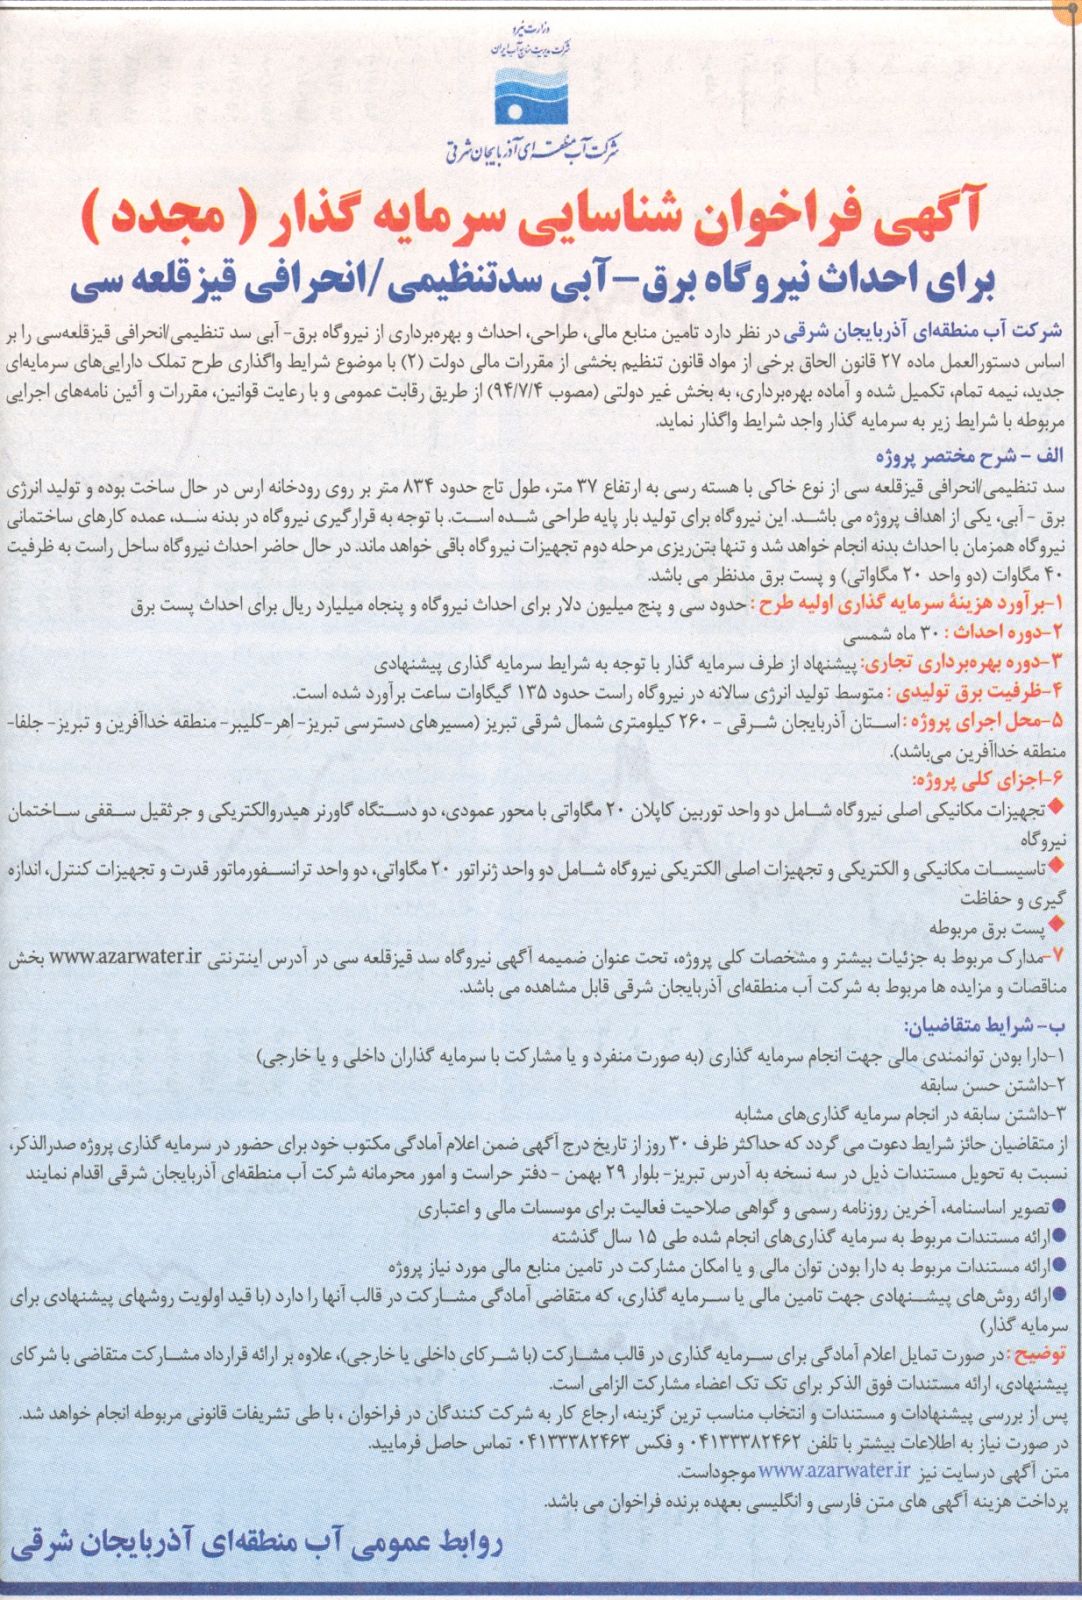 وزارت نیرو
شرکت مدیریت منابع آب ایران
شرکت آب منطقه‌ای آذربایجان شرقی
آگهی فراخوان شناسایی سرمایه گذار ( مجدد )
برای احداث نیروگاه برق-آبی سدتنظیمی /انحرافی قیزقلعه سی
شرکت آب منطقه‌ای آذربایجان شرقی در نظر دارد تامین منابع مالی، طراحی، احداث و بهره‌برداری از نیروگاه برق- آبی سد تنظیمی/انحرافی قیزقلعه‌سی را بر
اساس دستورالعمل ماده ۲۷ قانون الحاق برخی از مواد قانون تنظیم بخشی از مقررات مالی دولت (۲) با موضوع شرایط واگذاری طرح تملک دارایی‌های سرمایه‌ای
جدید، نیمه تمام، تکمیل شده و آماده بهره‌برداری، به بخش غیر دولتی (مصوب ۹۴/۷/۴) از طریق رقابت عمومی و با رعایت قوانین، مقررات و آئین نامه‌های اجرایی
مربوطه با شرایط زیر به سرمایه گذار واجد شرایط واگذار نماید.
الف - شرح مختصر پروژه
سد تنظیمی/انحرافی قیزقلعه سی از نوع خاکی با هسته رسی به ارتفاع ۳۷ متر، طول تاج حدود ۸۳۴ متر بر روی رودخانه ارس در حال ساخت بوده و تولید انرژی
برق - آبی، یکی از اهداف پروژه می باشد. این نیروگاه برای تولید بار پایه طراحی شده است. با توجه به قرارگیری نیروگاه در بدنه سد، عمده کارهای ساختمانی
نیروگاه همزمان با احداث بدنه انجام خواهد شد و تنها بتن‌ریزی مرحله دوم تجهیزات نیروگاه باقی خواهد ماند. در حال حاضر احداث نیروگاه ساحل راست به ظرفیت
۴۰ مگاوات (دو واحد ۲۰ مگاواتی) و پست برق مدنظر می باشد.
۱-برآورد هزینهٔ سرمایه گذاری اولیه طرح : حدود سی و پنج میلیون دلار برای احداث نیروگاه و پنجاه میلیارد ریال برای احداث پست برق
۲-دوره احداث : ۳۰ ماه شمسی
۳-دوره بهره‌برداری تجاری: پیشنهاد از طرف سرمایه گذار با توجه به شرایط سرمایه گذاری پیشنهادی
۴-ظرفیت برق تولیدی : متوسط تولید انرژی سالانه در نیروگاه راست حدود ۱۳۵ گیگاوات ساعت برآورد شده است.
۵-محل اجرای پروژه : استان آذربایجان شرقی - ۲۶۰ کیلومتری شمال شرقی تبریز (مسیرهای دسترسی تبریز- اهر-کلیبر- منطقه خداآفرین و تبریز- جلفا-
منطقه خداآفرین می‌باشد).
۶-اجزای کلی پروژه:
◆ تجهیزات مکانیکی اصلی نیروگاه شامل دو واحد توربین کاپلان ۲۰ مگاواتی با محور عمودی، دو دستگاه گاورنر هیدروالکتریکی و جرثقیل سقفی ساختمان
نیروگاه
◆ تاسیسات مکانیکی و الکتریکی و تجهیزات اصلی الکتریکی نیروگاه شامل دو واحد ژنراتور ۲۰ مگاواتی، دو واحد ترانسفورماتور قدرت و تجهیزات کنترل، اندازه
گیری و حفاظت
◆ پست برق مربوطه
۷-مدارک مربوط به جزئیات بیشتر و مشخصات کلی پروژه، تحت عنوان ضمیمه آگهی نیروگاه سد قیزقلعه سی در آدرس اینترنتی www.azarwater.ir بخش
مناقصات و مزایده ها مربوط به شرکت آب منطقه‌ای آذربایجان شرقی قابل مشاهده می باشد.
ب- شرایط متقاضیان:
۱-دارا بودن توانمندی مالی جهت انجام سرمایه گذاری (به صورت منفرد و یا مشارکت با سرمایه گذاران داخلی و یا خارجی)
۲-داشتن حسن سابقه
۳-داشتن سابقه در انجام سرمایه گذاری‌های مشابه
از متقاضیان حائز شرایط دعوت می گردد که حداکثر ظرف ۳۰ روز از تاریخ درج آگهی ضمن اعلام آمادگی مکتوب خود برای حضور در سرمایه گذاری پروژه صدرالذکر،
نسبت به تحویل مستندات ذیل در سه نسخه به آدرس تبریز- بلوار ۲۹ بهمن - دفتر حراست و امور محرمانه شرکت آب منطقه‌ای آذربایجان شرقی اقدام نمایند
● تصویر اساسنامه، آخرین روزنامه رسمی و گواهی صلاحیت فعالیت برای موسسات مالی و اعتباری
● ارائه مستندات مربوط به سرمایه گذاری‌های انجام شده طی ۱۵ سال گذشته
● ارائه مستندات مربوط به دارا بودن توان مالی و یا امکان مشارکت در تامین منابع مالی مورد نیاز پروژه
● ارائه روش‌های پیشنهادی جهت تامین مالی یا سرمایه گذاری، که متقاضی آمادگی مشارکت در قالب آنها را دارد (با قید اولویت روشهای پیشنهادی برای
سرمایه گذار)
توضیح : در صورت تمایل اعلام آمادگی برای سرمایه گذاری در قالب مشارکت (با شرکای داخلی یا خارجی)، علاوه بر ارائه قرارداد مشارکت متقاضی با شرکای
پیشنهادی، ارائه مستندات فوق الذکر برای تک تک اعضاء مشارکت الزامی است.
پس از بررسی پیشنهادات و مستندات و انتخاب مناسب ترین گزینه، ارجاع کار به شرکت کنندگان در فراخوان ، با طی تشریفات قانونی مربوطه انجام خواهد شد.
در صورت نیاز به اطلاعات بیشتر با تلفن ۰۴۱۳۳۳۸۲۴۶۲ و فکس ۰۴۱۳۳۳۸۲۴۶۳ تماس حاصل فرمایید.
متن آگهی درسایت نیز www.azarwater.ir موجوداست.
پرداخت هزینه آگهی های متن فارسی و انگلیسی بعهده برنده فراخوان می باشد.
روابط عمومی آب منطقه‌ای آذربایجان شرقی